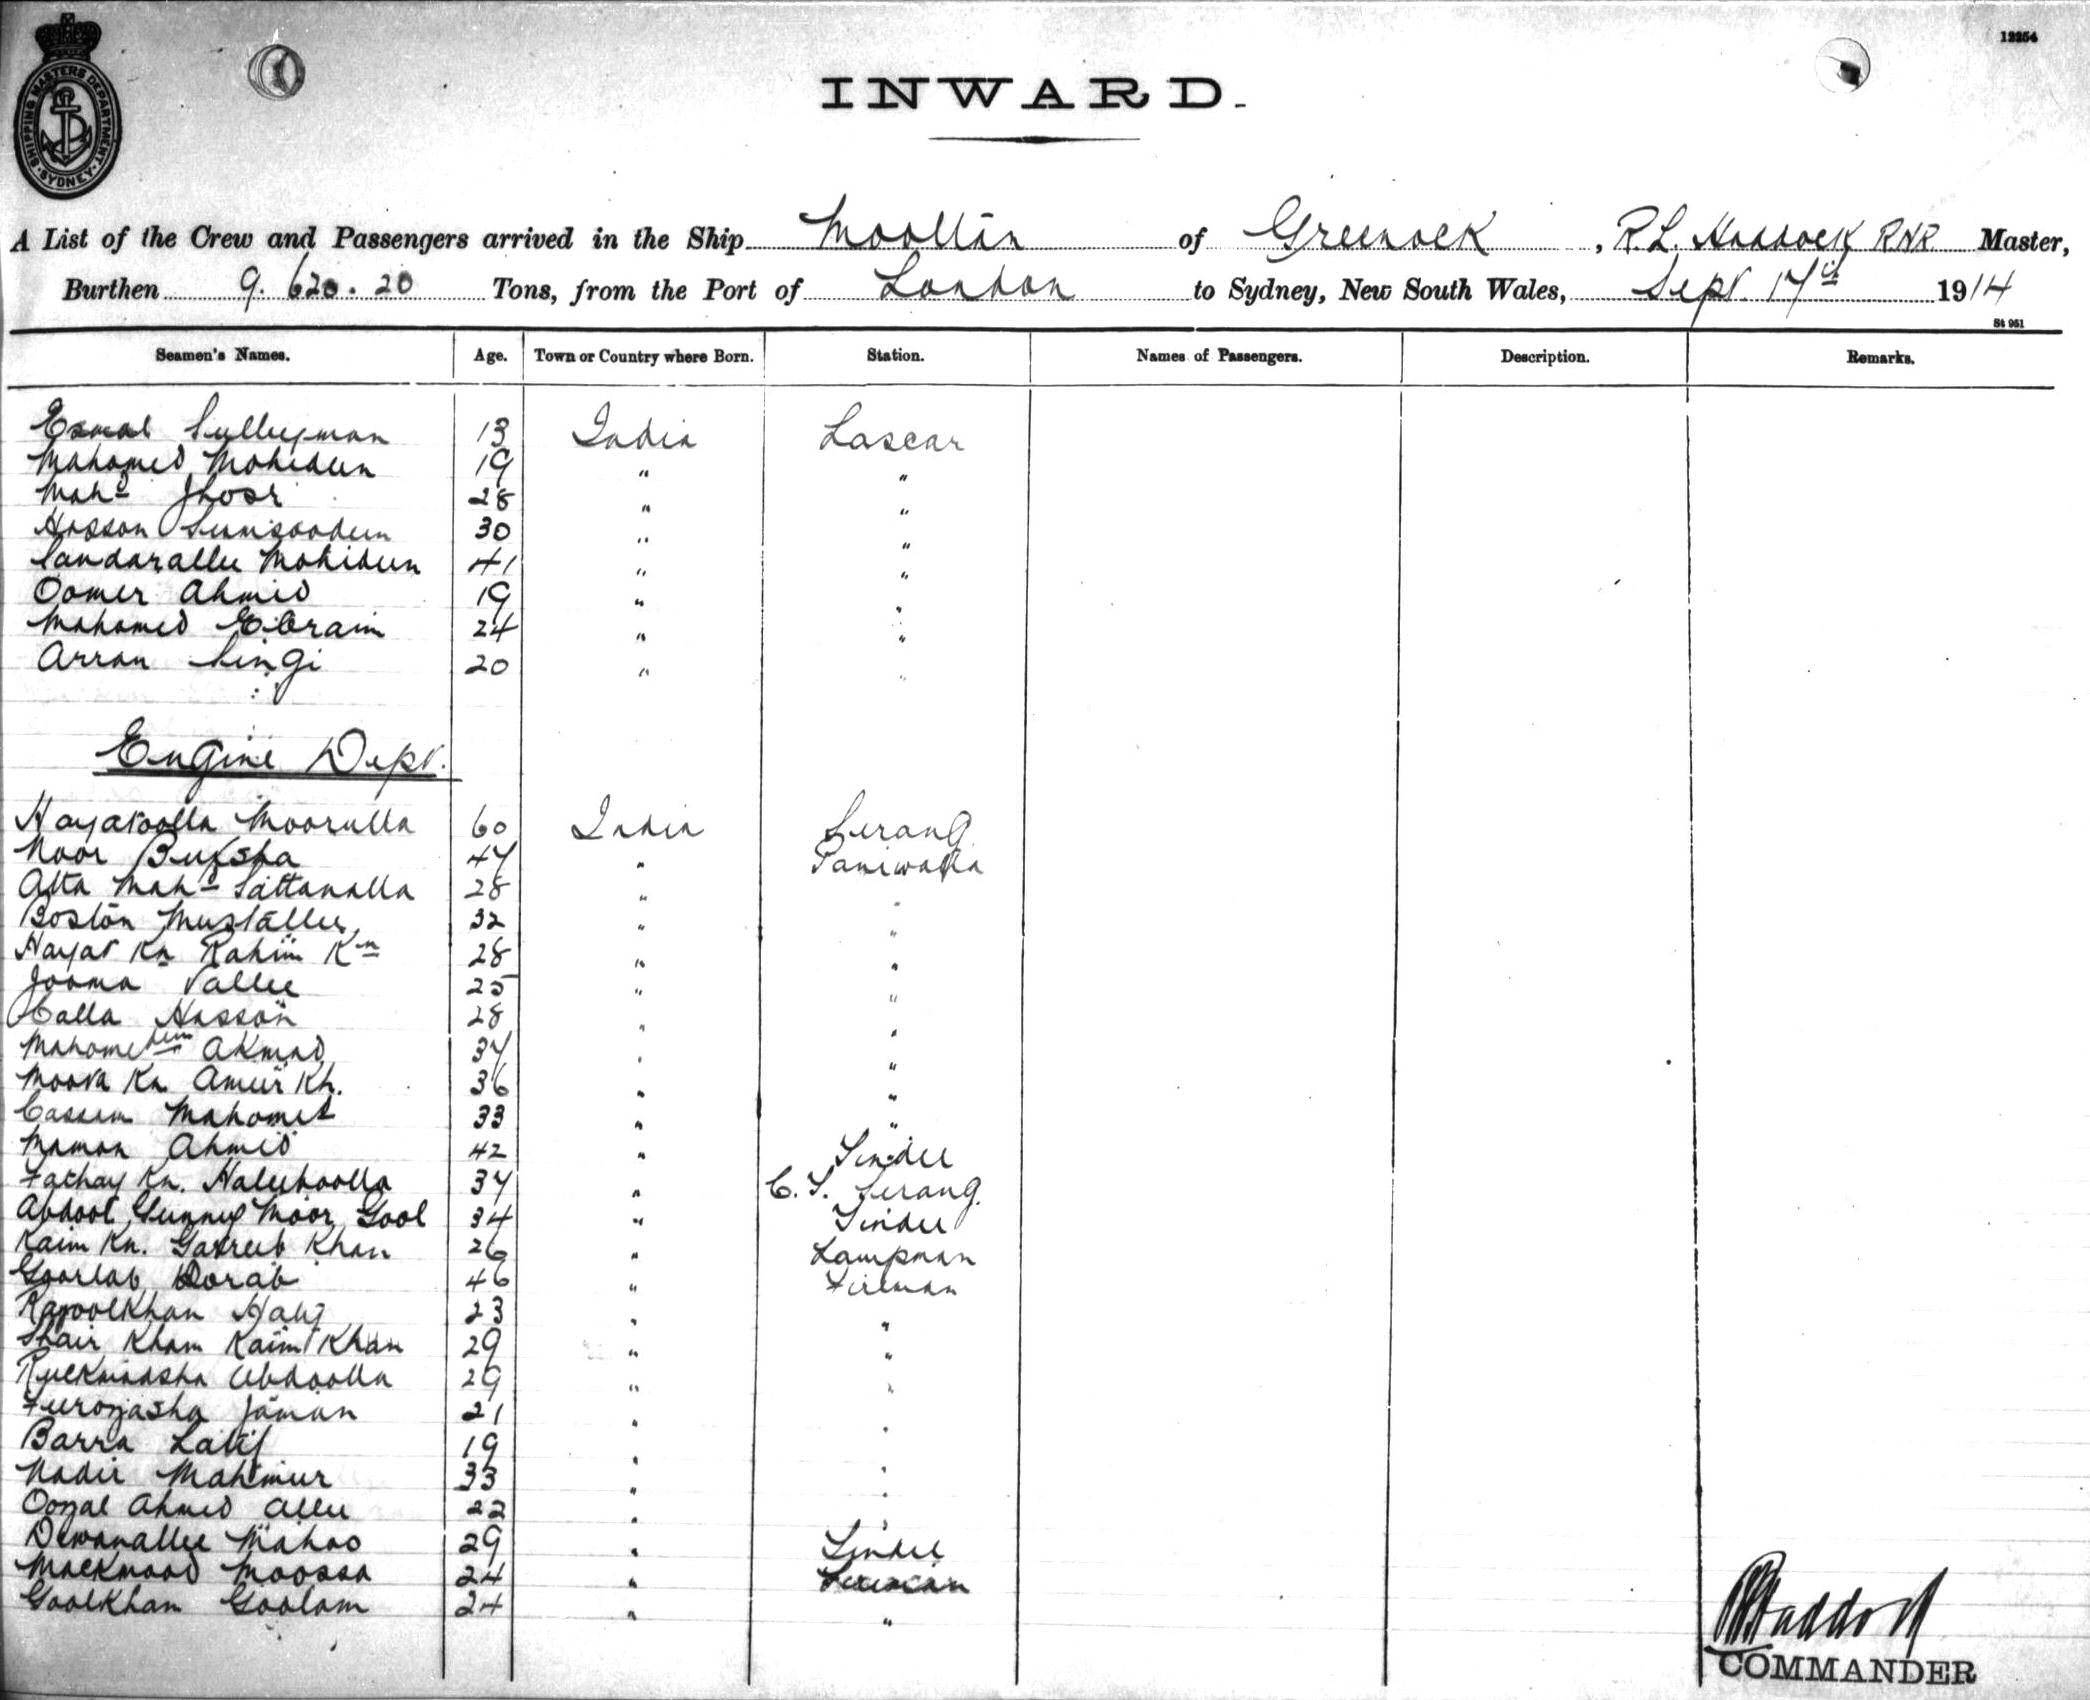 12254
SHIPPING MASTERS DEPARTMENT SYDNEY
INWARD.
A List of the Crew and Passengers arrived in the Ship Mooltan of Greenock, R.L. Haddock RNR Master,
Burthen 9.620.20 Tons, from the Port of London to Sydney, New South Wales, Sept. 17th 1914
St 951
Seamen's Names. Age. Town or Country where Born. Station. Names of Passengers. Description. Remarks.
Esmal Sulleyman 13 India Lascar
Mahomed Mohideen 19 " "
Mahd 28 " "
Hasson 30 " "
Sandarallee Mohideen 41 " "
Oomer Ahmid 19 " "
Mahomed Ebraim 24 " "
Arran Singi 20 " "
Engine Dept.
Hayatoolla Moorulla 60 India Serang
Noor Buksha 47 " Paniwalla
Atta Mahd Sattanalla 28 " "
Boston Mustallee 32 " "
Hayat Kn Rahim Kn 28 " "
Jooma Vallee 25 " "
Calla Hasson 28 " "
Mahome Akmad 37 " "
Moora Kn Ameir Kh. 36 " "
Cassem Mahomed 33 " "
Maman Ahmid 42 " Tindel
Fathay Kn. Haleeboolla 37 " C. T. Serang.
Abdool Gunny Moor Gool 34 " Tindel
Kaim Kn. Gareeb Khan 26 " Lampman
Goorlab Dorab 46 " Fireman
Khan 23 " "
Shair Kham Kaim Khan 29 " "
Ruckmadsha Abdoolla 29 " "
Ferozasha Jaman 21 " "
Barra Latif 19 " "
Nadir Mahmur 33 " "
Oozal Ahmed Allee 22 " "
Dewanallee Mahao 29 " Tindel
Mackmood Moossa 24 " Fireman
Goolkham Goolam 24 " "
Haddock
COMMANDER